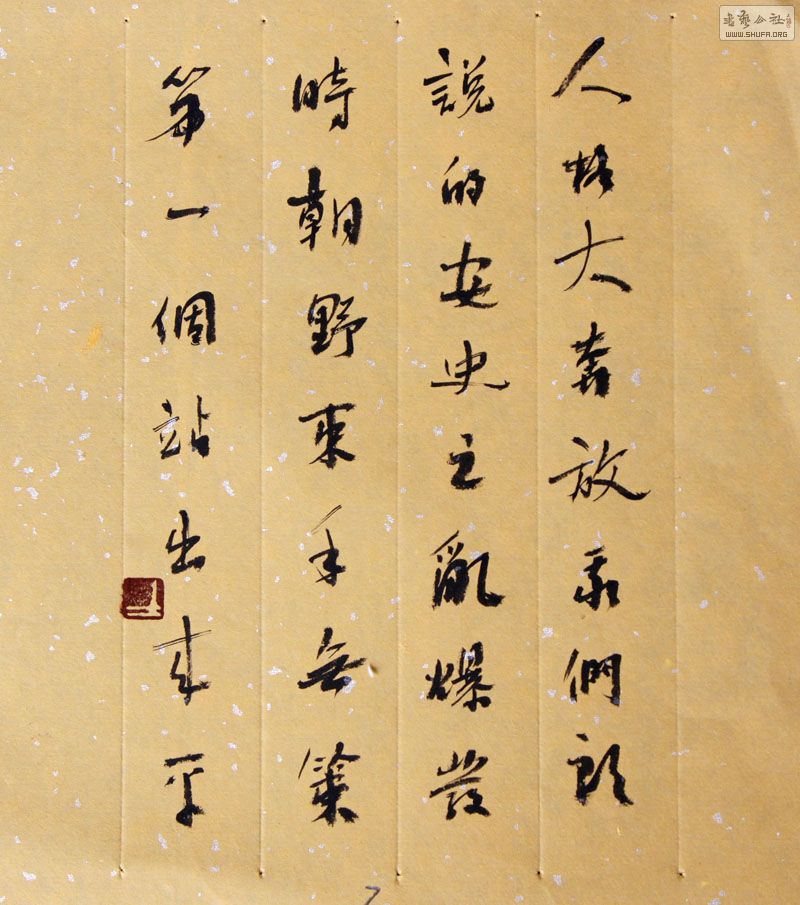 人格大奔放我們
說的安史之亂爆發
時朝野束手無策
第一個站出來平
書藝公社
WWW.SHUFA.ORG